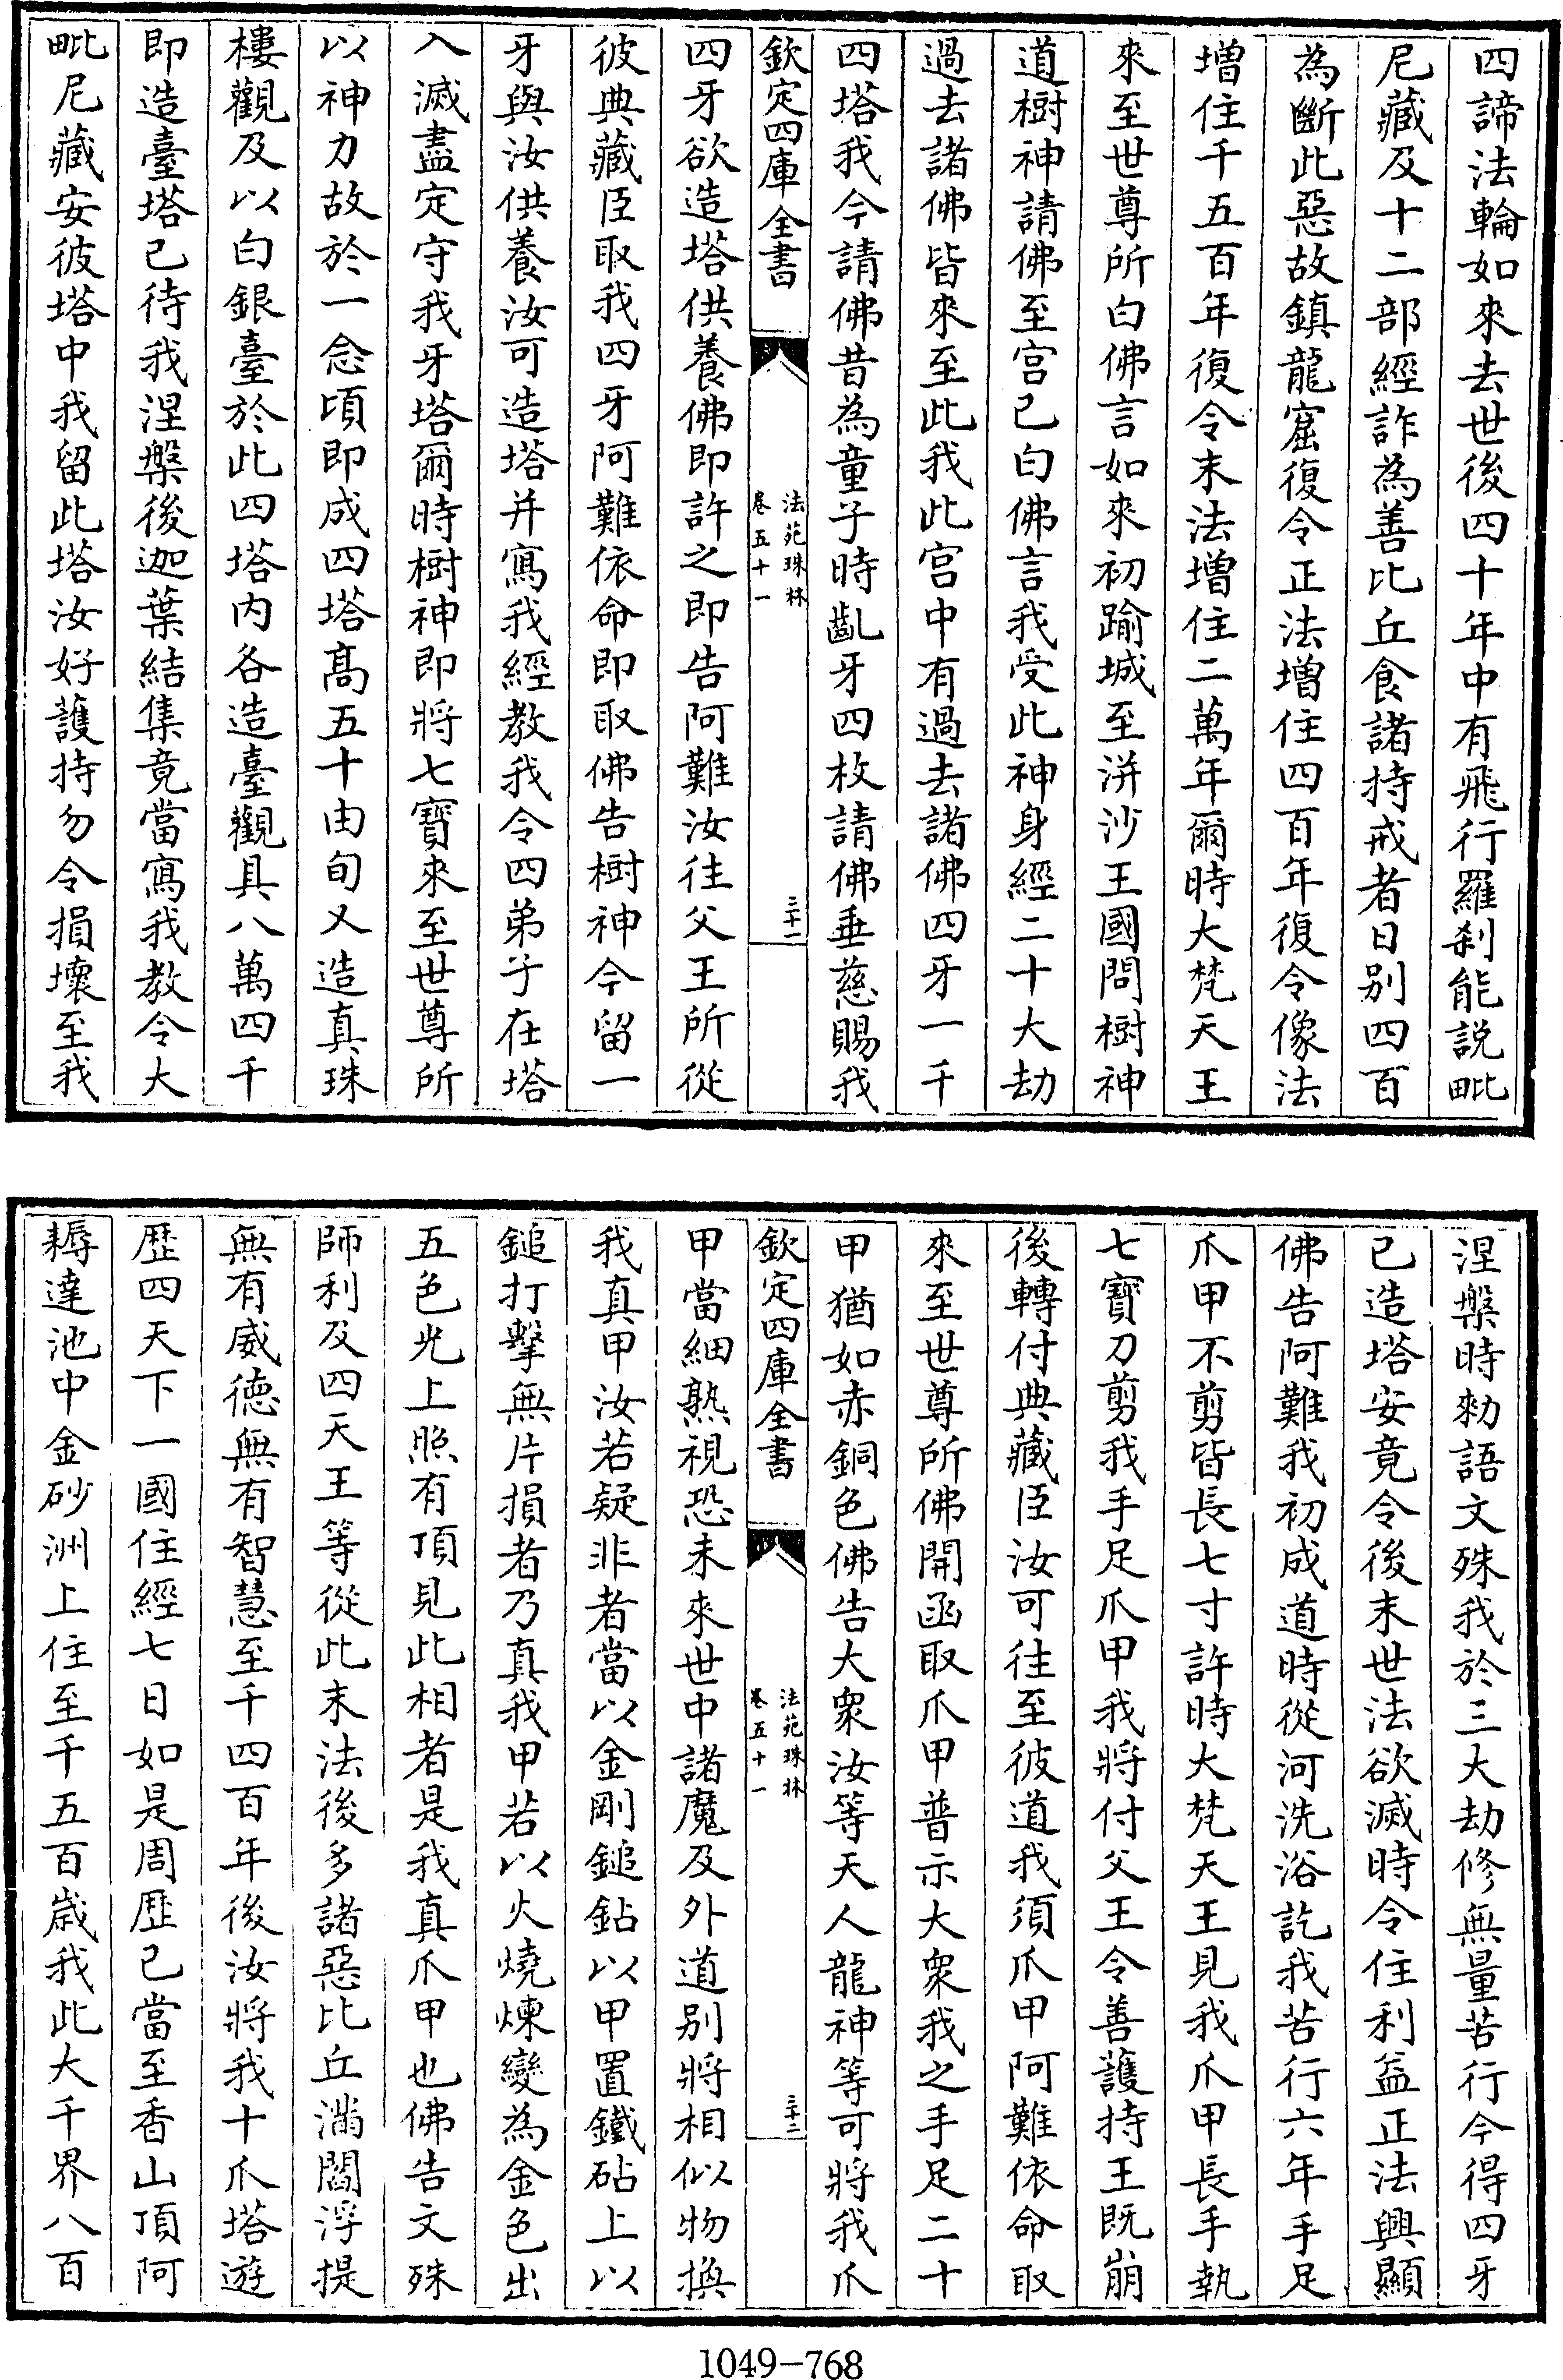 四諦法輪如來去世後四十年中有飛行羅刹能說毗
尼藏及十二部經詐為善比丘食諸持戒者日别四百
為斷此惡故鎮龍窟復令正法增住四百年復令像法
增住千五百年復令末法增住二萬年爾時大梵天王
來至世尊所白佛言如來初踰城至洴沙王國問樹神
道樹神請佛至宫已白佛言我受此神身經二十大劫
過去諸佛皆來至此我此宫中有過去諸佛四牙一千
四塔我今請佛昔為童子時齓牙四枚請佛垂慈賜我
欽定四庫全書
法苑珠林
卷五十一
三十一
四牙欲造塔供養佛即許之即告阿難汝往父王所從
彼典藏臣取我四牙阿難依命即取佛告樹神今留一
牙與汝供養汝可造塔并寫我經教我令四弟子在塔
入滅盡定守我牙塔爾時樹神即將七寶來至世尊所
以神力故於一念頃即成四塔高五十由旬又造真珠
樓觀及以白銀臺於此四塔内各造臺觀具八萬四千
即造臺塔已待我涅槃後迦葉結集竟當寫我教令大
毗尼藏安彼塔中我留此塔汝好護持勿令損壞至我
涅槃時勑語文殊我於三大劫修無量苦行今得四牙
已造塔安竟令後末世法欲滅時令住利益正法興顯
佛告阿難我初成道時從河洗浴訖我苦行六年手足
爪甲不剪皆長七寸許時大梵天王見我爪甲長手執
七寶刀剪我手足爪甲我將付父王令善護持王既崩
後轉付典藏臣汝可往至彼道我須爪甲阿難依命取
來至世尊所佛開函取爪甲普示大衆我之手足二十
甲猶如赤銅色佛告大衆汝等天人龍神等可將我爪
欽定四庫全書
法苑珠林
卷五十一
三十二
甲當細熟視恐未來世中諸魔及外道别將相似物換
我真甲汝若疑非者當以金剛鎚鉆以甲置鐵砧上以
鎚打擊無片損者乃真我甲若以火燒煉變為金色出
五色光上照有頂見此相者是我真爪甲也佛告文殊
師利及四天王等從此末法後多諸惡比丘滿閻浮提
無有威德無有智慧至千四百年後汝將我十爪塔遊
歷四天下一國住經七日如是周歷已當至香山頂阿
耨達池中金砂洲上住至千五百歲我此大千界八百
1049-768